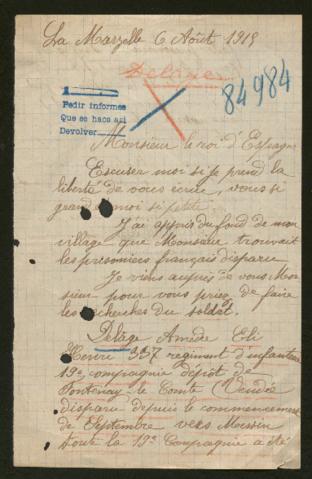 La Marzelle 6 Août 1918
Delâge
84984
Pedir informes
Que se hace aqi
Devolver
Monsieur le roi d'Espagne
Escuser moi si je prend la
liberté de vous écrire, vous si
grand et moi si petite.
J'ai appris du fond de mon
village que Monsieur trouvait
les prisonniers français disparu
Je viens auprès de vous Mon
sieur pour vous prier de faire
les recherches du soldat.
Delâge Amédé Eli
Henri 337 regiment d'infanterie
19e compagnie dépôt de
Fontenay-le Comte Vendée
disparu depuis le commencement
de Septembre vers
toute la 19e Compagnie a été